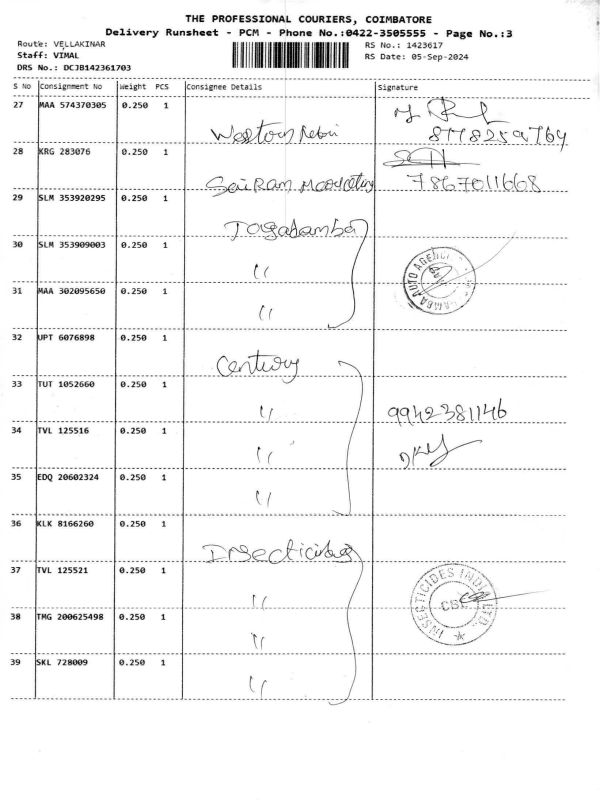 THE PROFESSIONAL COURIERS, COIMBATORE
Delivery Runsheet - PCM - Phone No.:0422-3505555 - Page No.:3
Route: VELLAKINAR
RS No.: 1423617
Staff: VIMAL
RS Date: 05-Sep-2024
DRS No.: DCJB142361703
S No Consignment No Weight PCS Consignee Details Signature
27 MAA 574370305 0.250 1
8778259764
28 KRG 283076 0.250 1
SaiRam 7867011668
29 SLM 353920295 0.250 1
Jagadamba
30 SLM 353909003 0.250 1
"
31 MAA 302095650 0.250 1
"
AUTO AGENCI
32 UPT 6076898 0.250 1
Century
33 TUT 1052660 0.250 1
" 9942381146
34 TVL 125516 0.250 1
"
35 EDQ 20602324 0.250 1
"
36 KLK 8166260 0.250 1
Insecticides
37 TVL 125521 0.250 1
"
INSECTICIDES INDIA LTD.
CBE
38 TMG 200625498 0.250 1
"
39 SKL 728009 0.250 1
"